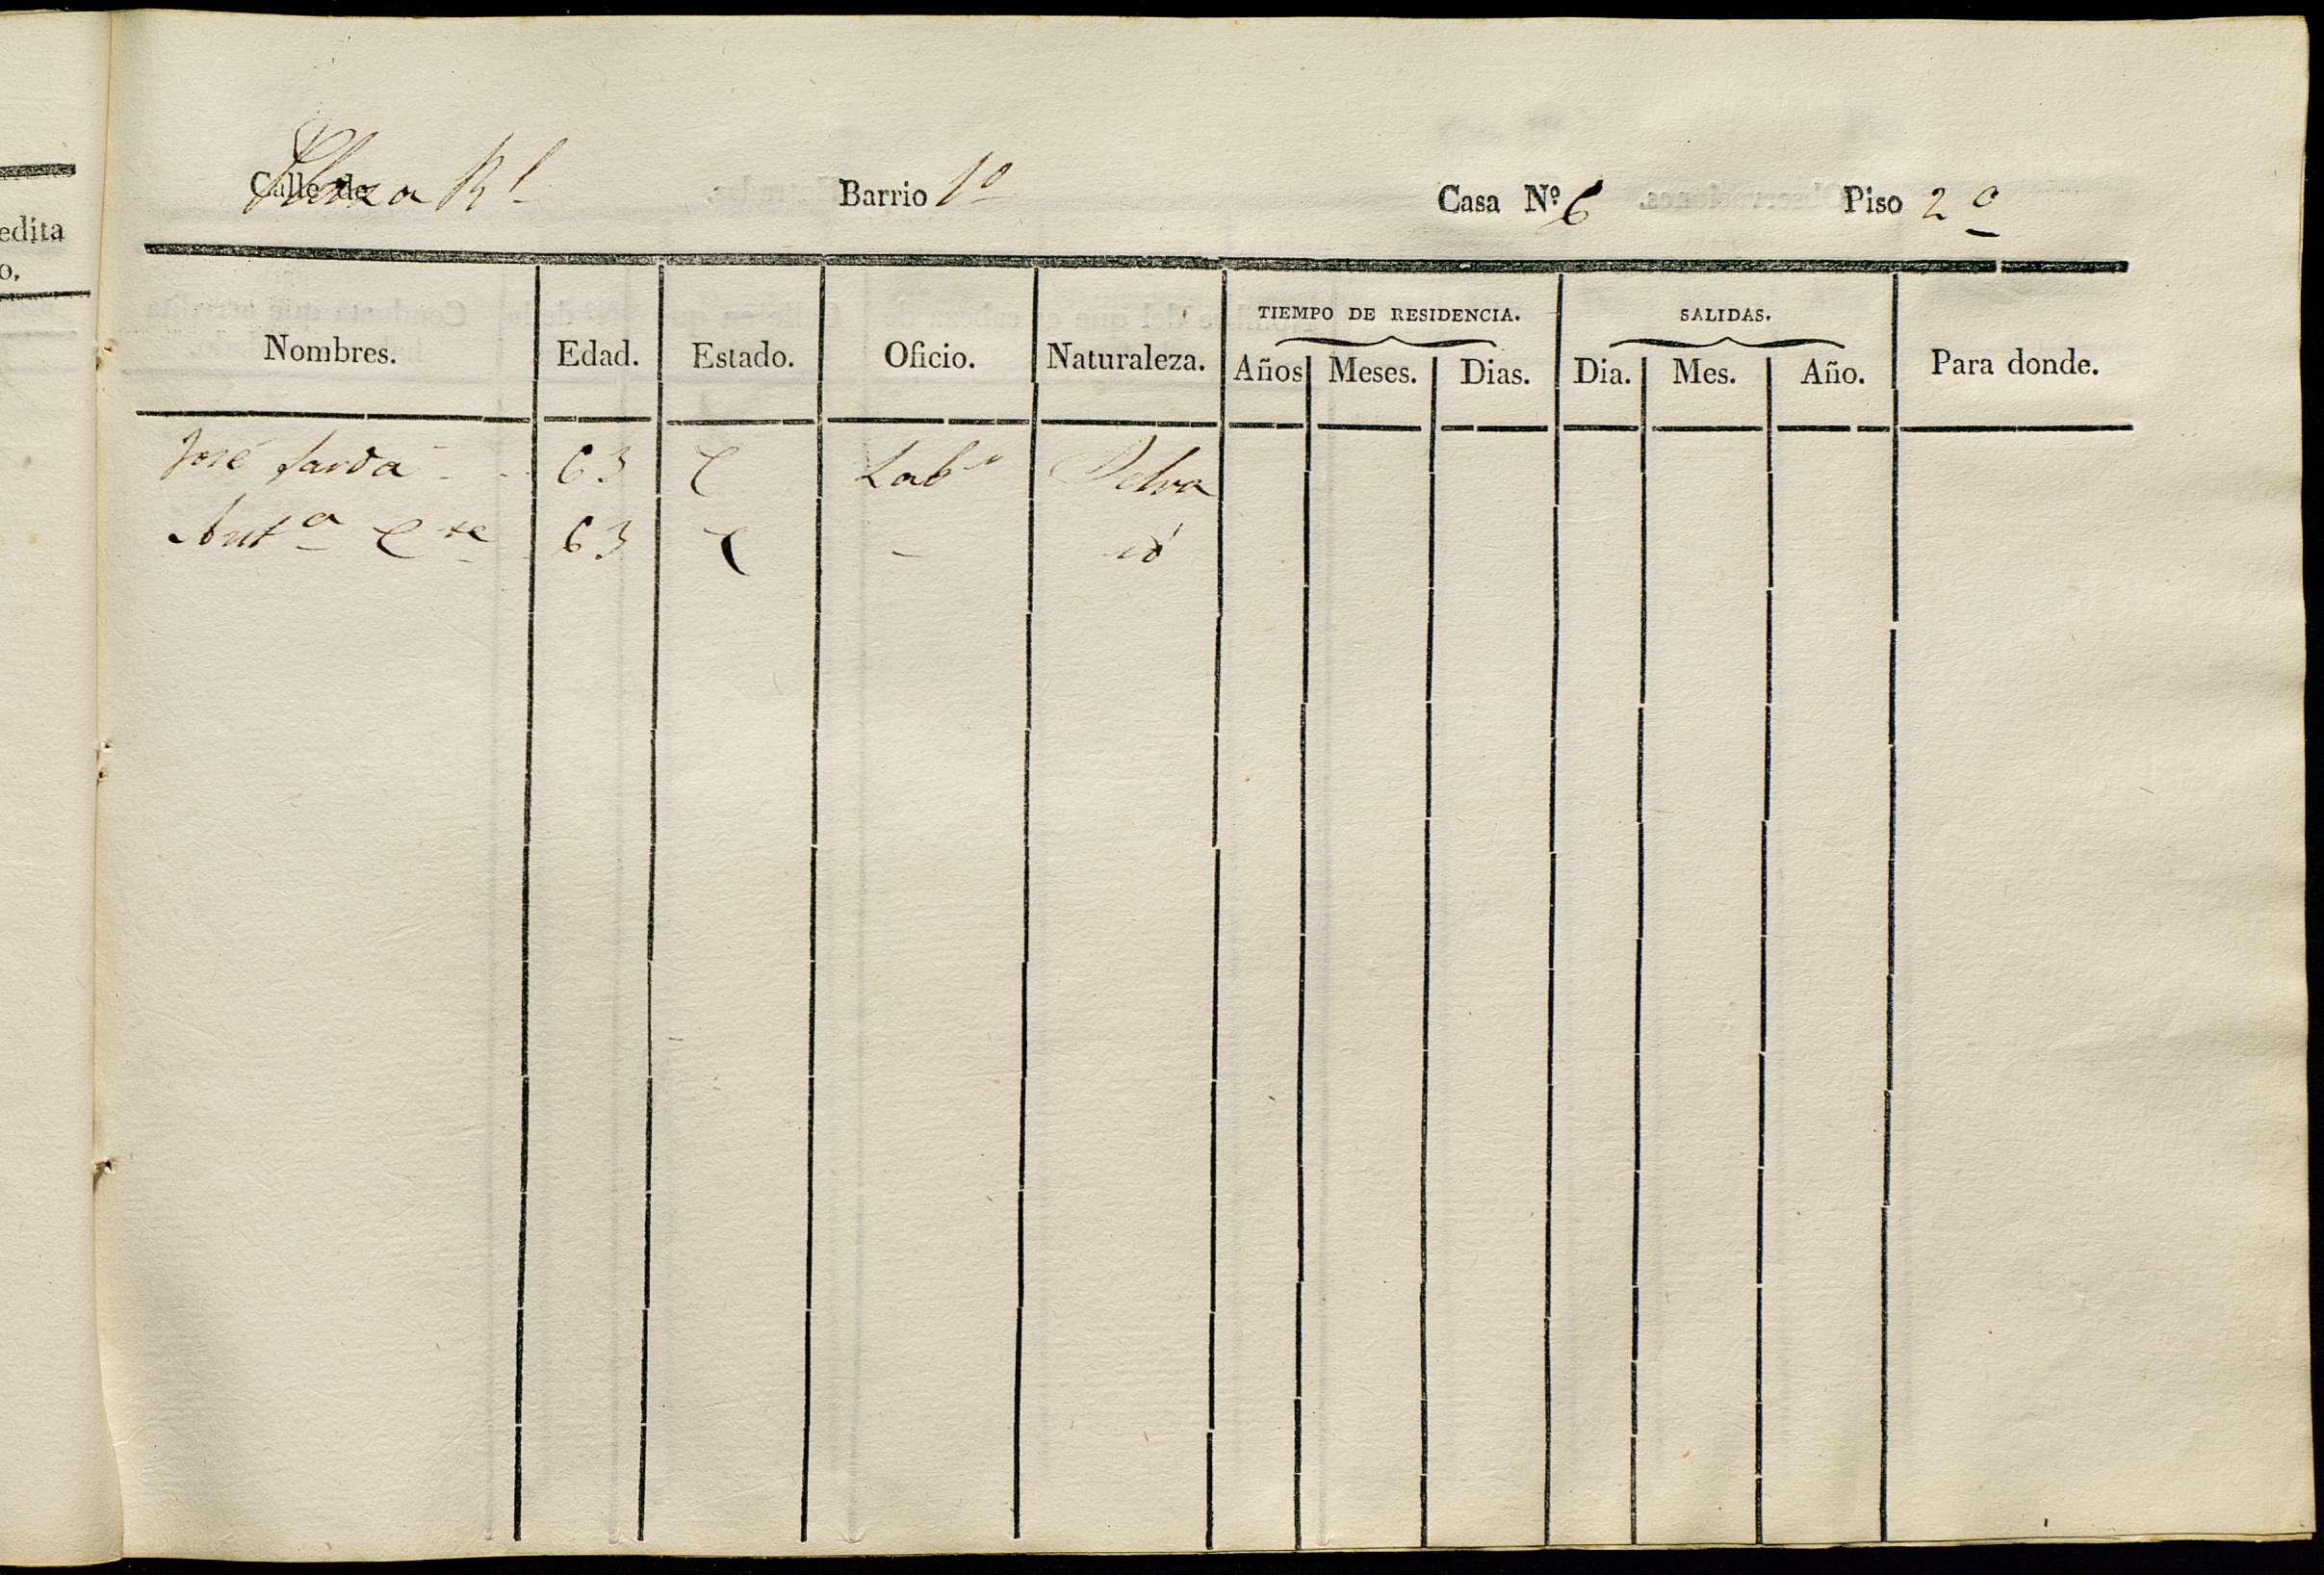 edita
o,
Calle de Plaza Rl Barrio 1º Casa Nº 6 Piso 2º
TIEMPO DE RESIDENCIA. SALIDAS.
Nombres. Edad. Estado. Oficio. Naturaleza. Años Meses. Dias. Dia. Mes. Año. Para donde.
José Sardá 63 C Labr Selva
Anta C te 63 C - id